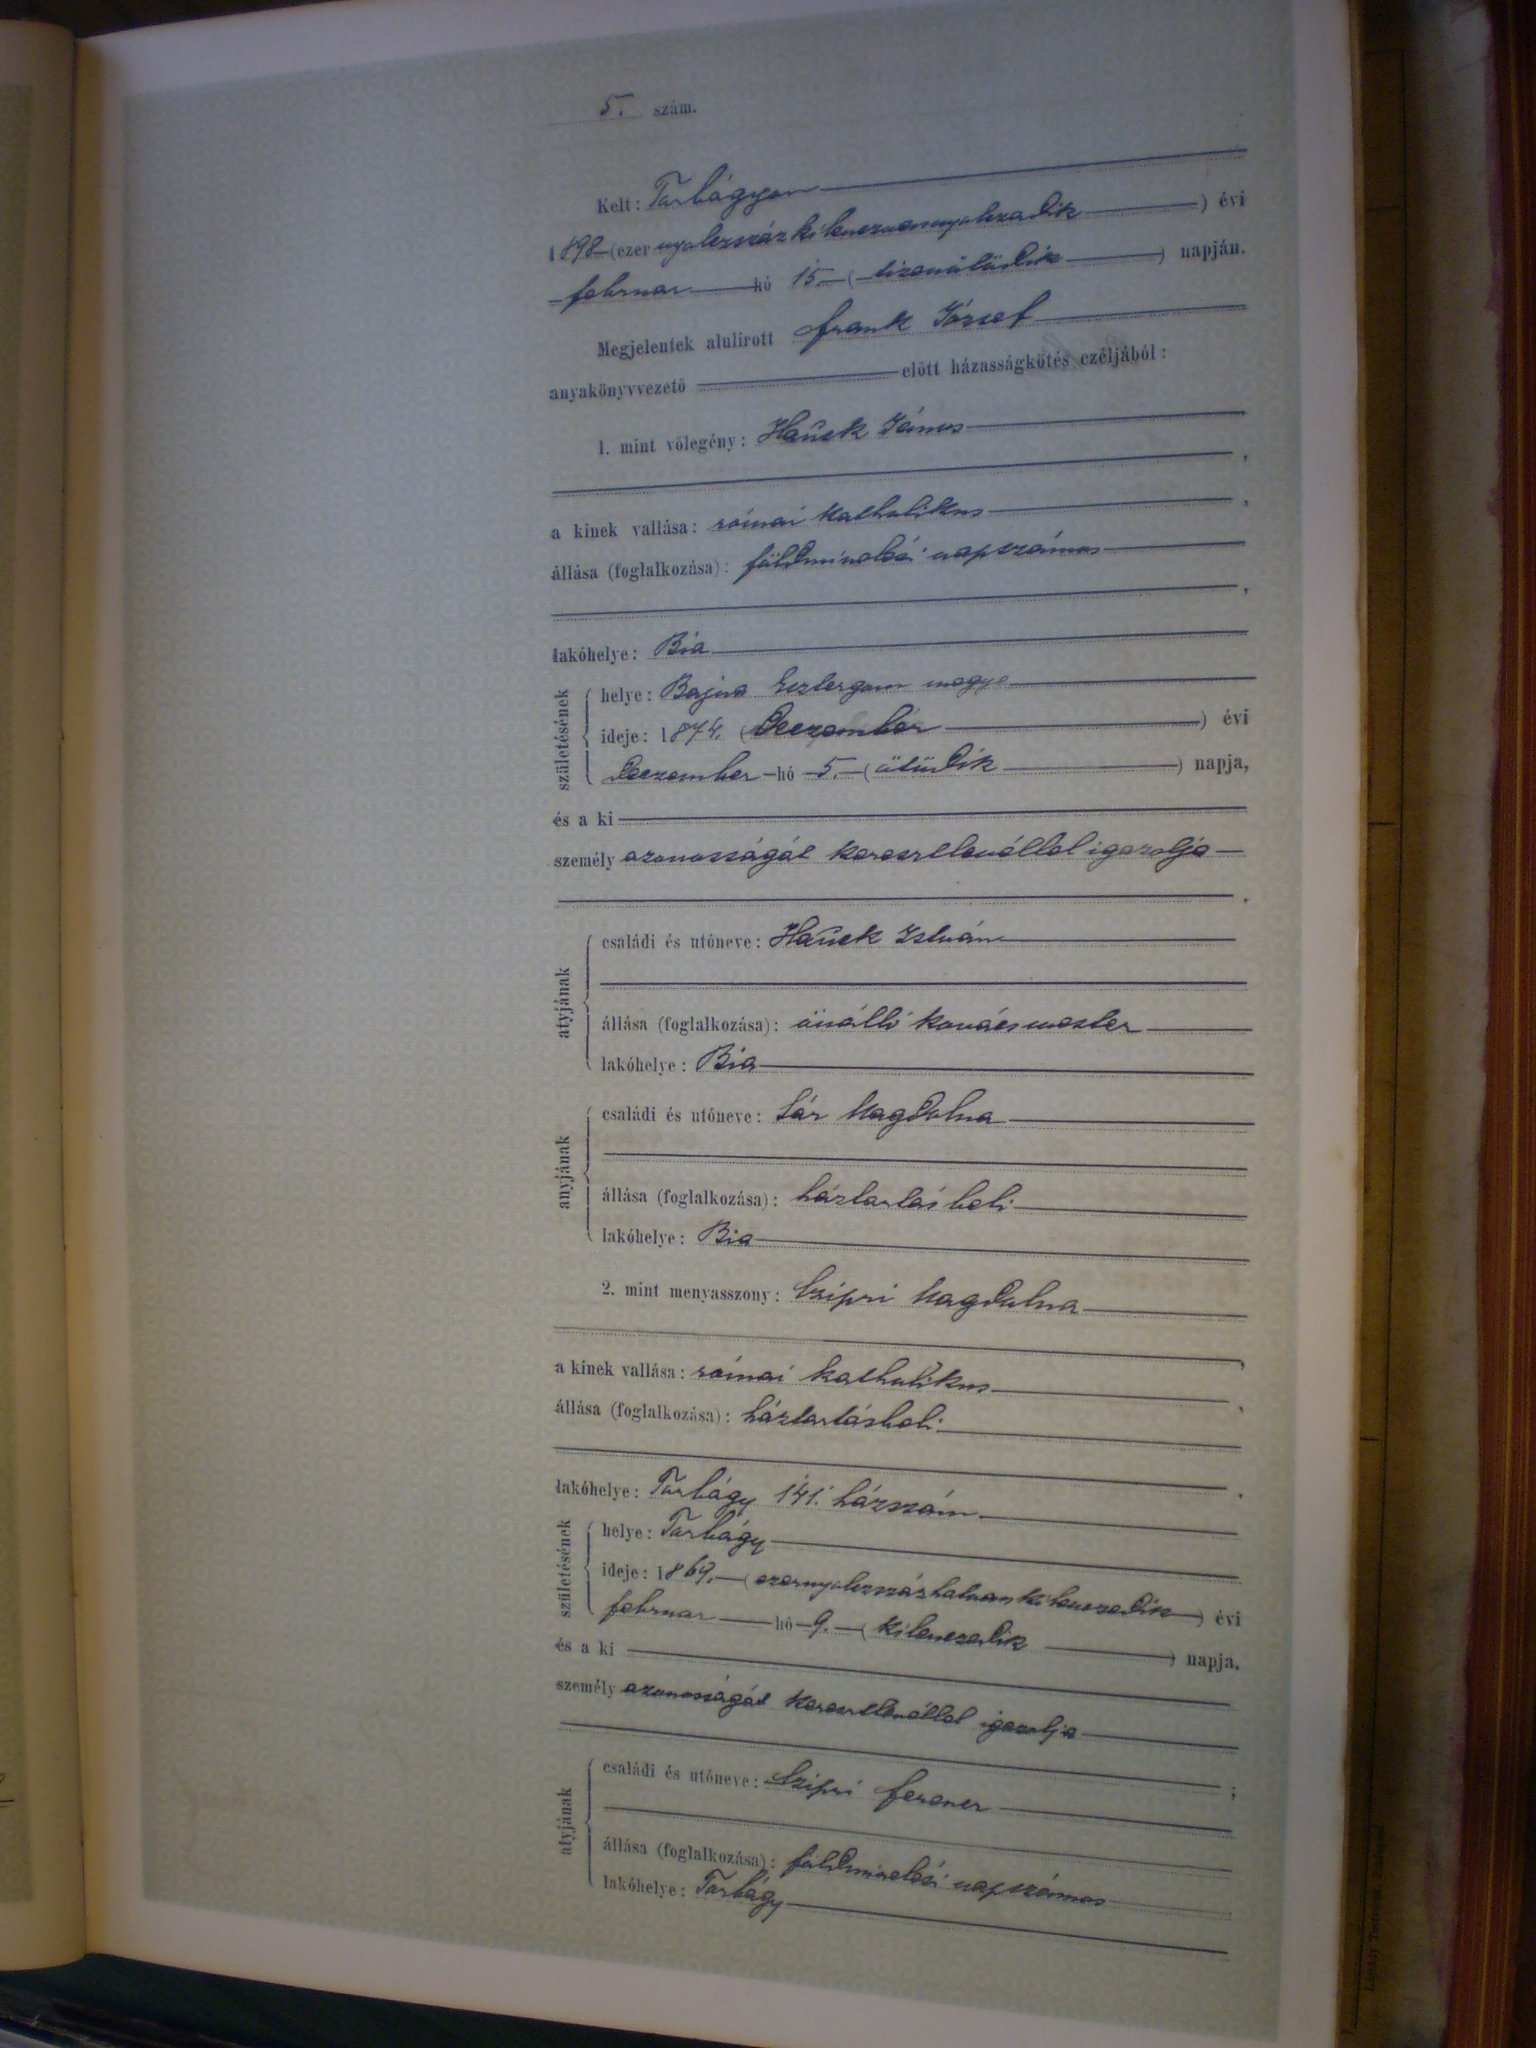 5. szám.
Kelt: Torbágyon
1898 (ezer nyolczszáz kilenczvennyolczadik) évi
februar hó 15. (tizenötödik) napján.
Megjelentek alulirott Frank József
anyakönyvvezető előtt házasságkötés czéljából:
1. mint vőlegény: Hauek János
,
a kinek vallása: római katholikus,
állása (foglalkozása): földmivelési napszámos
,
lakóhelye: Bia
születésének
helye: Bajna Esztergom megye
ideje: 1874. (Deczember) évi
Deczember hó 5. (ötödik) napja,
és a ki
személy azonosságát keresztlevéllel igazolja
.
atyjának
családi és utóneve: Hauek István
állása (foglalkozása): önálló kovácsmester
lakóhelye: Bia
anyjának
családi és utóneve: Sár Magdolna
állása (foglalkozása): háztartásbeli
lakóhelye: Bia
2. mint menyasszony: Czipri Magdolna
,
a kinek vallása: római katholikus,
állása (foglalkozása): háztartásbeli
.
lakóhelye: Torbágy 141. házszám
születésének
helye: Torbágy
ideje: 1869. (ezernyolczszázhatvankilenczedik) évi
februar hó 9. (kilenczedik) napja,
és a ki
személy azonosságát keresztlevéllel igazolja
;
atyjának
családi és utóneve: Czipri Ferencz
állása (foglalkozása): földmivelési napszámos
lakóhelye: Torbágy